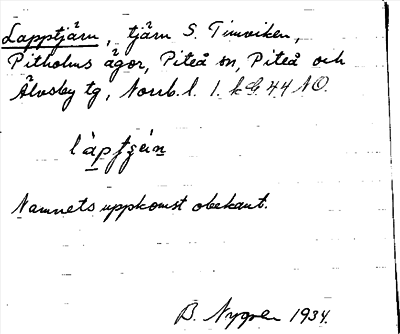 Lapptjärn, tjärn S. Timviken,
Pitholms ägor, Piteå sn, Piteå och
Älvsby tg, Norrb. l. 1. kbl. 44 NO.
Namnets uppkomst obekant.
B. Nygren 1934.